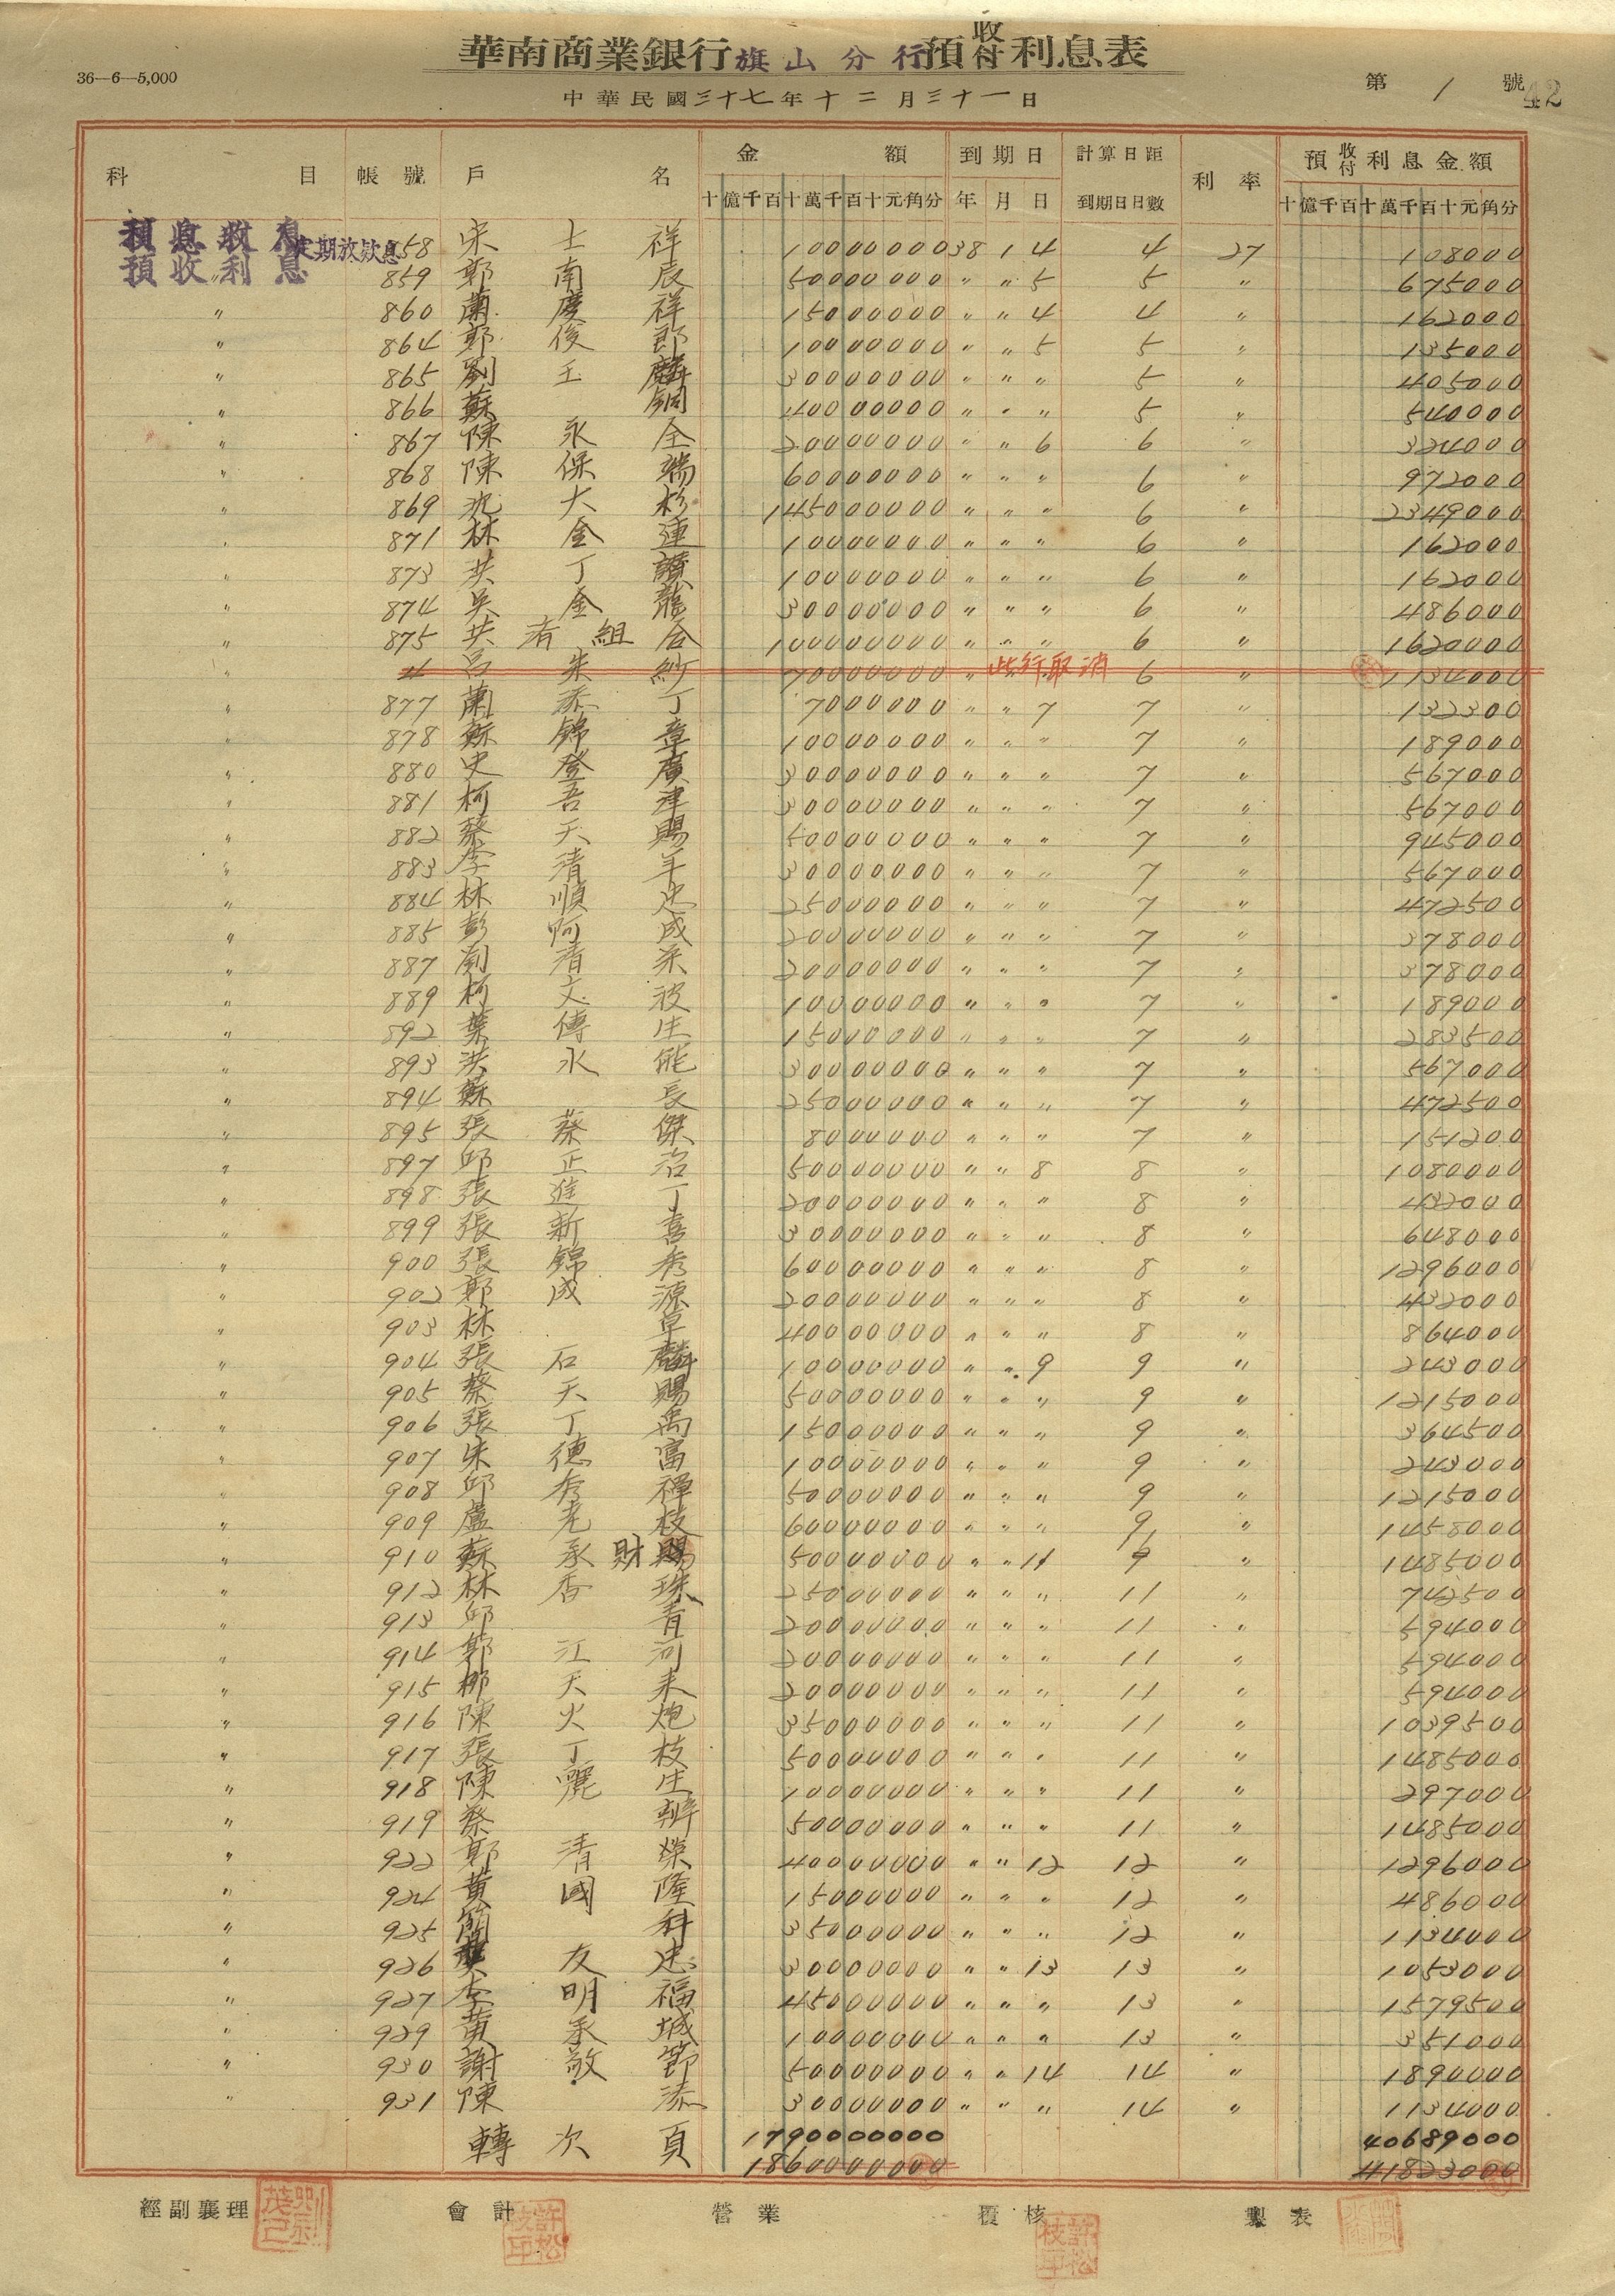 華南商業銀行旗山分行預收付利息表
36—6—5,000
中華民國三十七年十二月三十一日
第 1 號
42
科目 帳號 戶名 金額 到期日 計算日距到期日日數 利率 預收付利息金額
十億千百十萬千百十元角分 年 月 日 十億千百十萬千百十元角分
預收利息 定期放款息 858 宋士祥 10000000 38 1 4 4 27 108000
〃 859 郭南辰 50000000 〃 〃 5 5 〃 675000
〃 860 蘭慶祥 15000000 〃 〃 4 4 〃 162000
〃 864 郭俊郎 10000000 〃 〃 5 5 〃 135000
〃 865 劉玉麟 30000000 〃 〃 〃 5 〃 405000
〃 866 蘇銅 40000000 〃 〃 〃 5 〃 540000
〃 867 陳永全 20000000 〃 〃 6 6 〃 324000
〃 868 陳保瑞 60000000 〃 〃 〃 6 〃 972000
〃 869 沈大杉 145000000 〃 〃 〃 6 〃 2349000
〃 871 林金連 10000000 〃 〃 〃 6 〃 162000
〃 873 洪丁讚 10000000 〃 〃 〃 6 〃 162000
〃 874 吳金龍 30000000 〃 〃 〃 6 〃 486000
〃 875 共有組合 100000000 〃 〃 〃 6 〃 1620000
〃 〃 呂朱紗 70000000 〃 此行取消 6 〃 1134000
〃 877 蘭添丁 7000000 〃 〃 7 7 〃 132300
〃 878 蘇錦章 10000000 〃 〃 〃 7 〃 189000
〃 880 史登廣 30000000 〃 〃 〃 7 〃 567000
〃 881 柯吾津 30000000 〃 〃 〃 7 〃 567000
〃 882 蔡天賜 50000000 〃 〃 〃 7 〃 945000
〃 883 李清羊 30000000 〃 〃 〃 7 〃 567000
〃 884 林順忠 25000000 〃 〃 〃 7 〃 472500
〃 885 彭阿成 20000000 〃 〃 〃 7 〃 378000
〃 887 劉清 20000000 〃 〃 〃 7 〃 378000
〃 889 柯文波 10000000 〃 〃 〃 7 〃 189000
〃 892 葉傳生 15000000 〃 〃 〃 7 〃 283500
〃 893 洪水能 30000000 〃 〃 〃 7 〃 567000
〃 894 蘇長 25000000 〃 〃 〃 7 〃 472500
〃 895 張蔡傑 8000000 〃 〃 〃 7 〃 151200
〃 897 邱正治 50000000 〃 〃 8 8 〃 1080000
〃 898 張進丁 20000000 〃 〃 〃 8 〃 432000
〃 899 張新喜 30000000 〃 〃 〃 8 〃 648000
〃 900 張錦秀 60000000 〃 〃 〃 8 〃 1296000
〃 902 鄭成源 20000000 〃 〃 〃 8 〃 432000
〃 903 林草 40000000 〃 〃 〃 8 〃 864000
〃 904 張石麟 10000000 〃 〃 9 9 〃 243000
〃 905 蔡天賜 50000000 〃 〃 〃 9 〃 1215000
〃 906 張丁禹 15000000 〃 〃 〃 9 〃 364500
〃 907 宋德富 10000000 〃 〃 〃 9 〃 243000
〃 908 邱秀禪 50000000 〃 〃 〃 9 〃 1215000
〃 909 盧老枝 60000000 〃 〃 〃 9 〃 1458000
〃 910 蘇承財 50000000 〃 〃 11 11 〃 1485000
〃 912 林香珠 25000000 〃 〃 〃 11 〃 742500
〃 913 邱青 20000000 〃 〃 〃 11 〃 594000
〃 914 郭江河 20000000 〃 〃 〃 11 〃 594000
〃 915 柳天來 20000000 〃 〃 〃 11 〃 594000
〃 916 陳火炮 35000000 〃 〃 〃 11 〃 1039500
〃 917 張丁枝 50000000 〃 〃 〃 11 〃 1485000
〃 918 陳麗生 10000000 〃 〃 〃 11 〃 297000
〃 919 蔡辦 50000000 〃 〃 〃 11 〃 1485000
〃 922 郭清榮 40000000 〃 〃 12 12 〃 1296000
〃 924 黃國隆 15000000 〃 〃 〃 12 〃 486000
〃 925 簡科 35000000 〃 〃 〃 12 〃 1134000
〃 926 友忠 30000000 〃 〃 13 13 〃 1053000
〃 927 李明福 45000000 〃 〃 〃 13 〃 1579500
〃 929 黃承城 10000000 〃 〃 〃 13 〃 351000
〃 930 謝敬節 50000000 〃 〃 14 14 〃 1890000
〃 931 陳添 30000000 〃 〃 〃 14 〃 1134000
轉次頁 1790000000 40689000
1860000000 41823000
經副襄理 會計 營業 覆核 製表